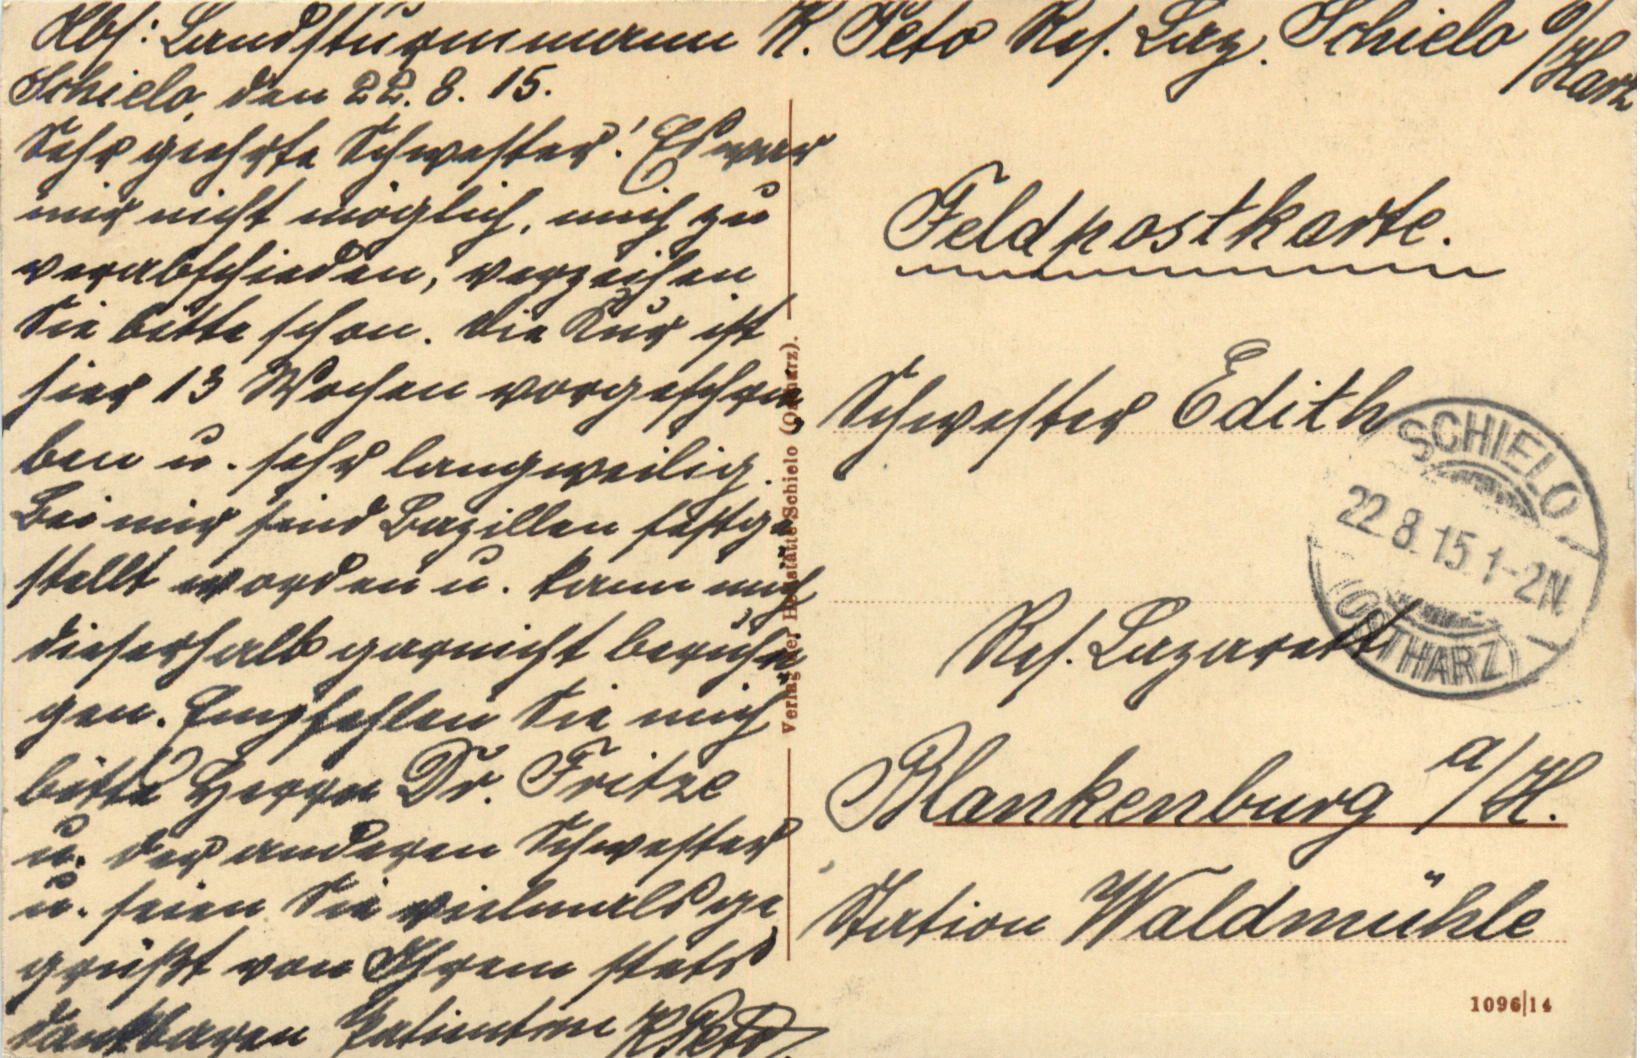 Abs: Landsturmmann K. Peto Res. Laz. Schielo a/Harz
Schielo, den 22. 8. 15.
Sehr geehrte Schwester! Es war
mir nicht möglich, mich zu
verabschieden, verzeihen
Sie bitte schon. Die Kur ist
hier 13 Wochen vorgeschrie
ben u. sehr langweilig.
Bei mir sind Bazillen festge
stellt worden u. kann mich
dieserhalb garnicht beruhi
gen. Empfehlen Sie mich
bitte Herrn Dr. Fritze
u. der anderen Schwester
u. seien Sie vielmals ge
grüßt von Ihrem stets
dankbaren Patienten KPeto
Verlag der Heilstätte Schielo (Ostharz).
Feldpostkarte.
Schwester Edith
Res. Lazarett
Blankenburg a/H.
Station Waldmühle
SCHIELO
22.8.15.1-2N
(OSTHARZ)
1096|14